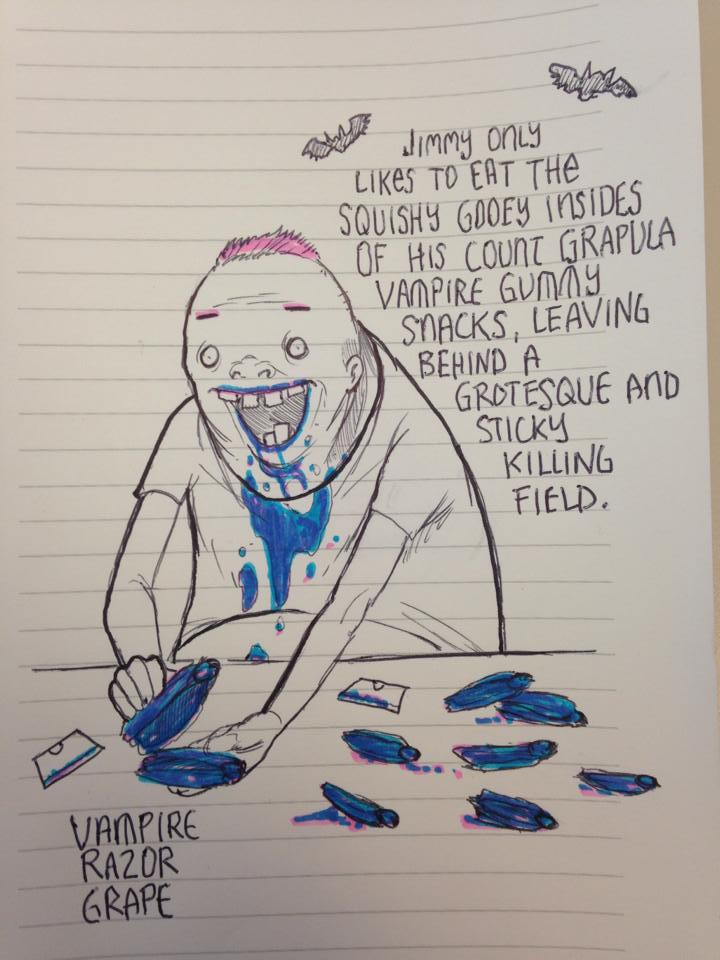 JIMMY ONLY
LIKES TO EAT THE
SQUISHY GOOEY INSIDES
OF HIS COUNT GRAPULA
VAMPIRE GUMMY
SNACKS, LEAVING
BEHIND A
GROTESQUE AND
STICKY
KILLING
FIELD.
VAMPIRE
RAZOR
GRAPE